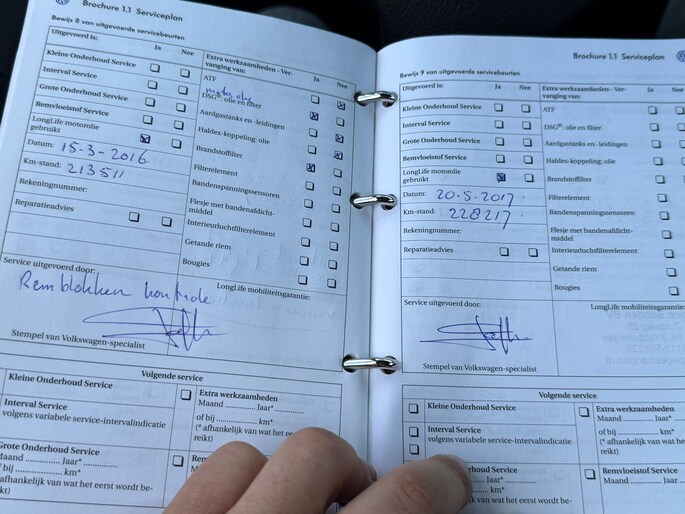 Brochure 1.1 Serviceplan
Bewijs 8 van uitgevoerde servicebeurten
Uitgevoerd is: Ja Nee
Kleine Onderhoud Service
Interval Service
Grote Onderhoud Service
Remvloeistof Service
LongLife motorolie
gebruikt
Datum: 15-3-2016
Km-stand: 213511
Rekeningnummer:
Reparatieadvies
Extra werkzaamheden - Ver-
vanging van: Ja Nee
ATF
motor olie
DSG®: olie en filter
Aardgastanks en -leidingen
Haldex-koppeling: olie
Brandstoffilter
Filterelement
Bandenspanningssensoren
Flesje met bandenafdicht-
middel
Interieurluchtfilterelement
Getande riem
Bougies
Service uitgevoerd door:
LongLife mobiliteitsgarantie:
Remblokken kontrole
Stempel van Volkswagen-specialist
Volgende service
Kleine Onderhoud Service
Interval Service
volgens variabele service-intervalindicatie
Grote Onderhoud Service
Maand .............. Jaar* ..............
of bij .............. km*
(* afhankelijk van wat het eerst wordt be-
reikt)
Extra werkzaamheden
Maand .............. Jaar* ..............
of bij .............. km*
(* afhankelijk van wat het eerst wordt be-
reikt)
Brochure 1.1 Serviceplan
Bewijs 9 van uitgevoerde servicebeurten
Uitgevoerd is: Ja Nee
Kleine Onderhoud Service
Interval Service
Grote Onderhoud Service
Remvloeistof Service
LongLife motorolie
gebruikt
Datum: 20-5-2017
Km-stand: 228217
Rekeningnummer:
Reparatieadvies
Extra werkzaamheden - Ver-
vanging van: Ja
ATF
DSG®: olie en filter
Aardgastanks en -leidingen
Haldex-koppeling: olie
Brandstoffilter
Filterelement
Bandenspanningssensoren
Flesje met bandenafdicht-
middel
Interieurluchtfilterelement
Getande riem
Bougies
Service uitgevoerd door:
LongLife mobiliteitsgarantie:
Stempel van Volkswagen-specialist
Volgende service
Kleine Onderhoud Service
Interval Service
volgens variabele service-intervalindicatie
Onderhoud Service
Jaar* ..............
km*
van wat het eerst wordt be-
Extra werkzaamheden
Maand .............. Jaar*
of bij .............. km*
(* afhankelijk van wat het
reikt)
Remvloeistof Service
Maand .............. Jaar*
of bij .............. km*
(* afhankelijk van wat
reikt)